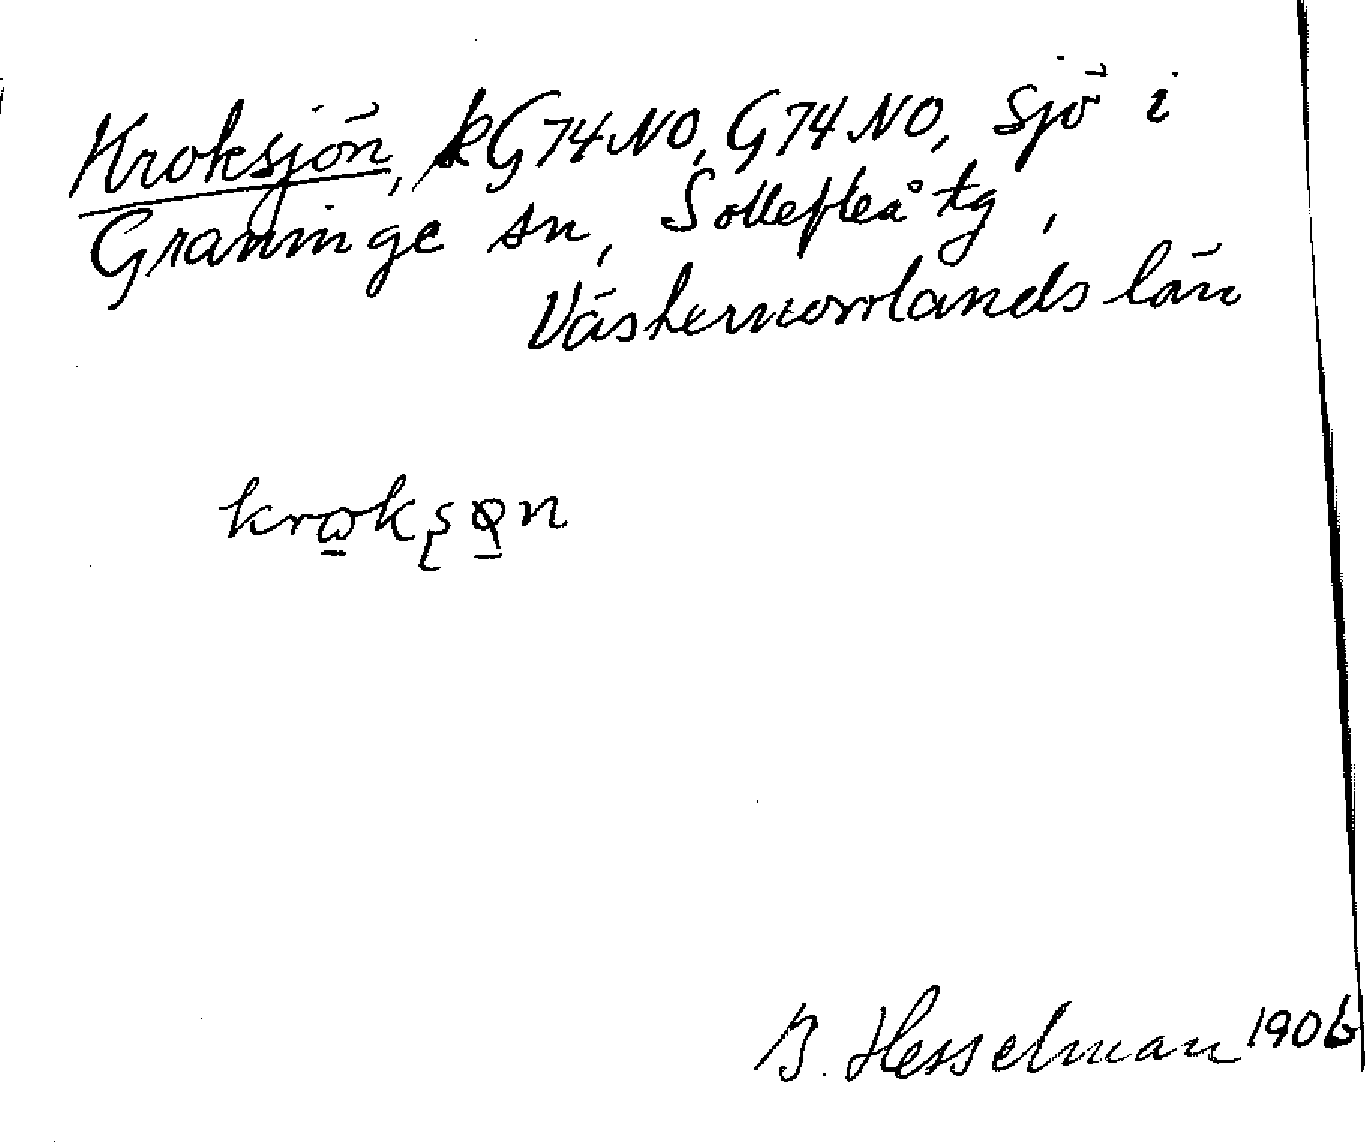 Kroksjön, kG74NO, G74NO, Sjö i
Graninge sn, Sollefteå tg,
Västernorrlands län
B. Hesselman 1906